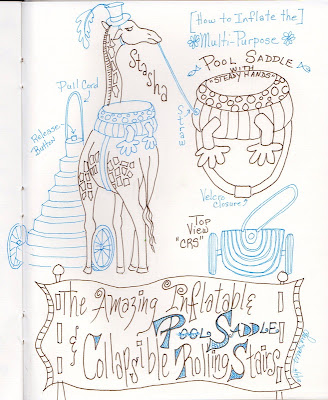 [How to Inflate the]
Multi-Purpose
POOL SADDLE
WITH
"STEADY HANDS"
Stasha
Straw
Pull Cord
Release
Button
Velcro
closure
Top
View
"CRS"
The Amazing Inflatable
POOL SADDLE
& Collapsible Rolling Stairs